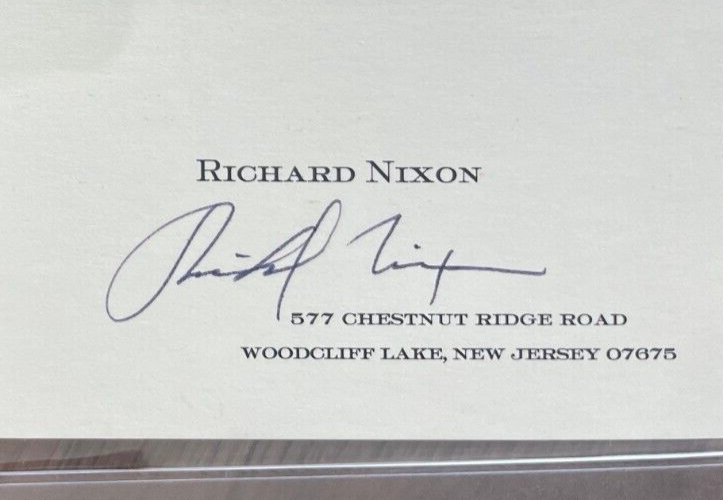 RICHARD NIXON
Richard Nixon
577 CHESTNUT RIDGE ROAD
WOODCLIFF LAKE, NEW JERSEY 07675